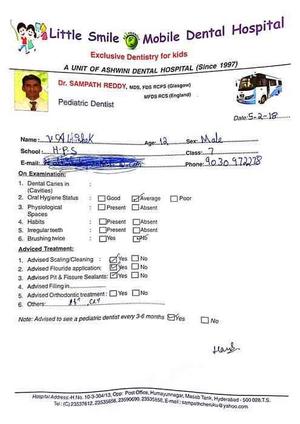 Little Smile Mobile Dental Hospital
Exclusive Dentistry for kids
A UNIT OF ASHWINI DENTAL HOSPITAL (Since 1997)
Dr. SAMPATH REDDY, MDS, FDS RCPS (Glasgow)
MFDS RCS (England)
Pediatric Dentist
Date: 5-2-18
Name: Age: 12 Sex: Male
School: H.P.S Class: 7
E-mail: Phone: 9030972278
On Examination:
1. Dental Caries in
(Cavities)
2. Oral Hygiene Status Good Average Poor
3. Physiological Present Absent
Spaces
4. Habits Present Absent
5. Irregular teeth Present Absent
6. Brushing twice Yes No
Adviced Treatment:
1. Advised Scaling/Cleaning Yes No
2. Advised Flouride application: Yes No
3. Advised Pit & Fissure Sealants: Yes No
4. Advised Filling in
5. Advised Orthodontic treatment: Yes No
6. Others:
Note: Advised to see a pediatric dentist every 3-6 months Yes No
Hospital Address: H.No. 10-3-304/13, Opp: Post Office, Humayunnagar, Masab Tank, Hyderabad - 500 028.T.S.